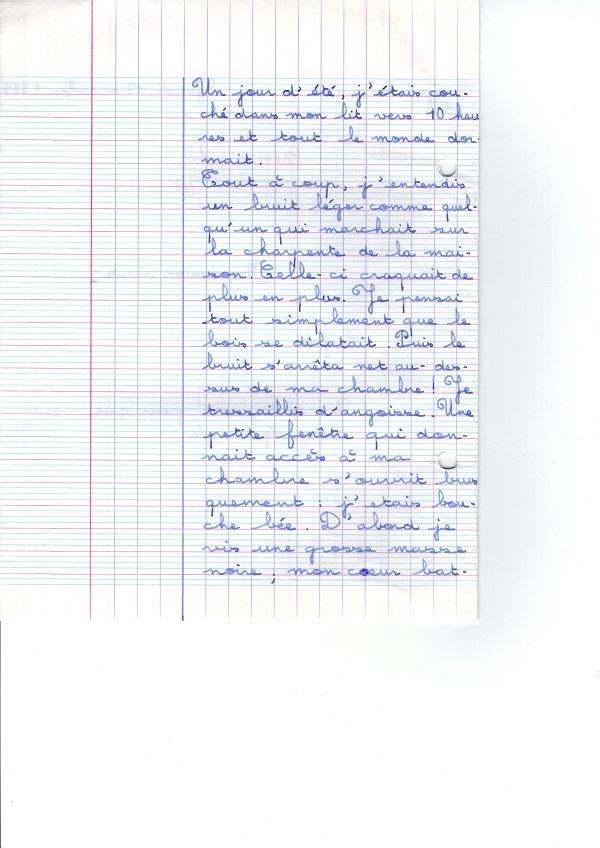 Un jour d'été, j'étais cou-
ché dans mon lit vers 10 heu
res et tout le monde dor-
mait.
Tout à coup, j'entendis
un bruit léger comme quel-
qu'un qui marchait sur
la charpente de la mai-
son. Celle-ci craquait de
plus en plus. Je pensai
tout simplement que le
bois se dilatait. Puis le
bruit s'arrêta net au-des-
sus de ma chambre! Je
tressaillis d'angoisse. Une
petite fenêtre qui don-
nait accès à ma
chambre s'ouvrit brus
quement : j'etais bou-
che bée. D'abord je
vis une grosse masse
noire ; mon coeur bat-